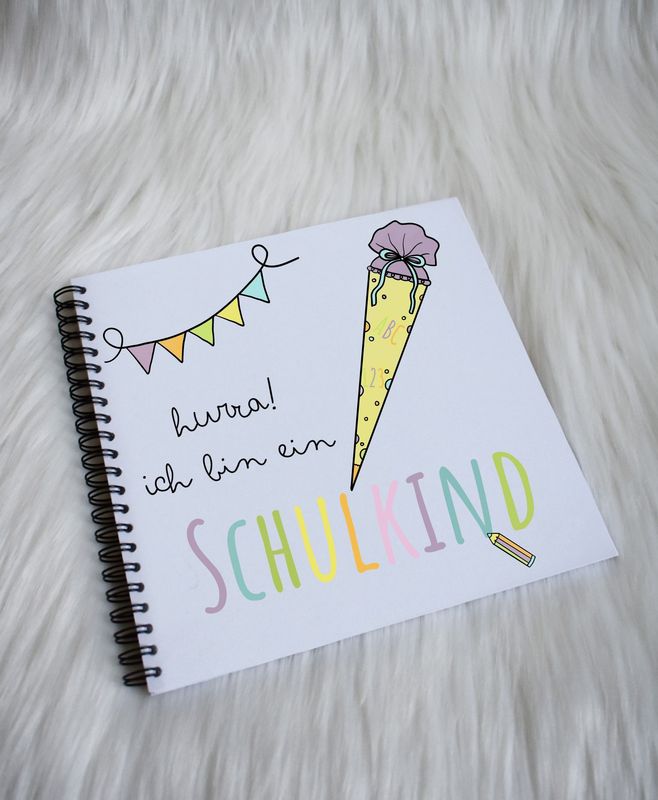 ABC
123
hurra!
ich bin ein
SCHULKIND